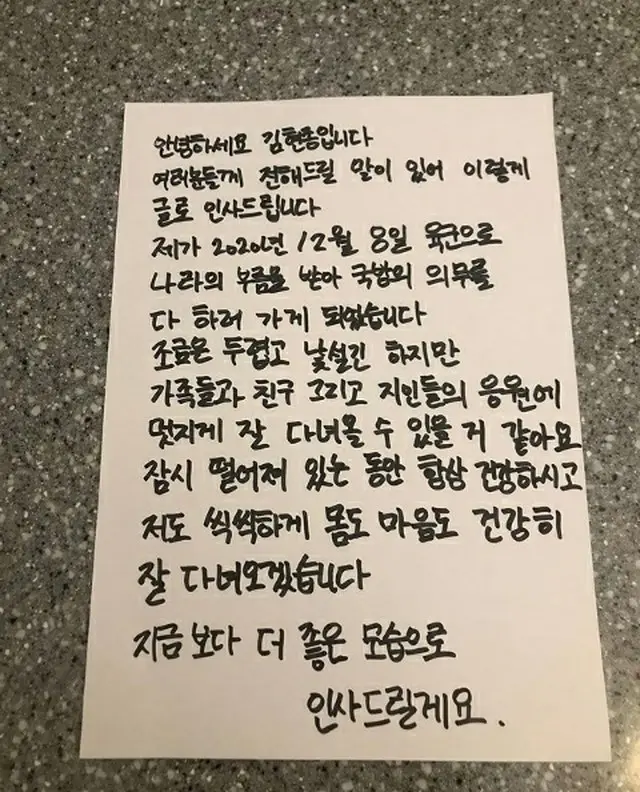 안녕하세요 김현종입니다
여러분들게 전해드릴 말이 있어 이렇게
글로 인사드립니다
제가 2020년 12월 8일 육군으로
나라의 부름을 받아 국방의 의무를
다 하러 가게 되었습니다
조금은 두렵고 낯설긴 하지만
가족들과 친구 그리고 지인들의 응원에
멋지게 잘 다녀올 수 있을 거 같아요
잠시 떨어져 있는 동안 항상 건강하시고
저도 씩씩하게 몸도 마음도 건강히
잘 다녀오겠습니다
지금 보다 더 좋은 모습으로
인사드릴게요.